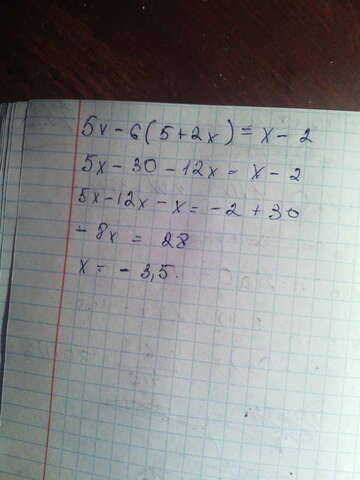 5x - 6(5 + 2x) = x - 2
5x - 30 - 12x = x - 2
5x - 12x - x = -2 + 30
- 8x = 28
x = - 3,5.